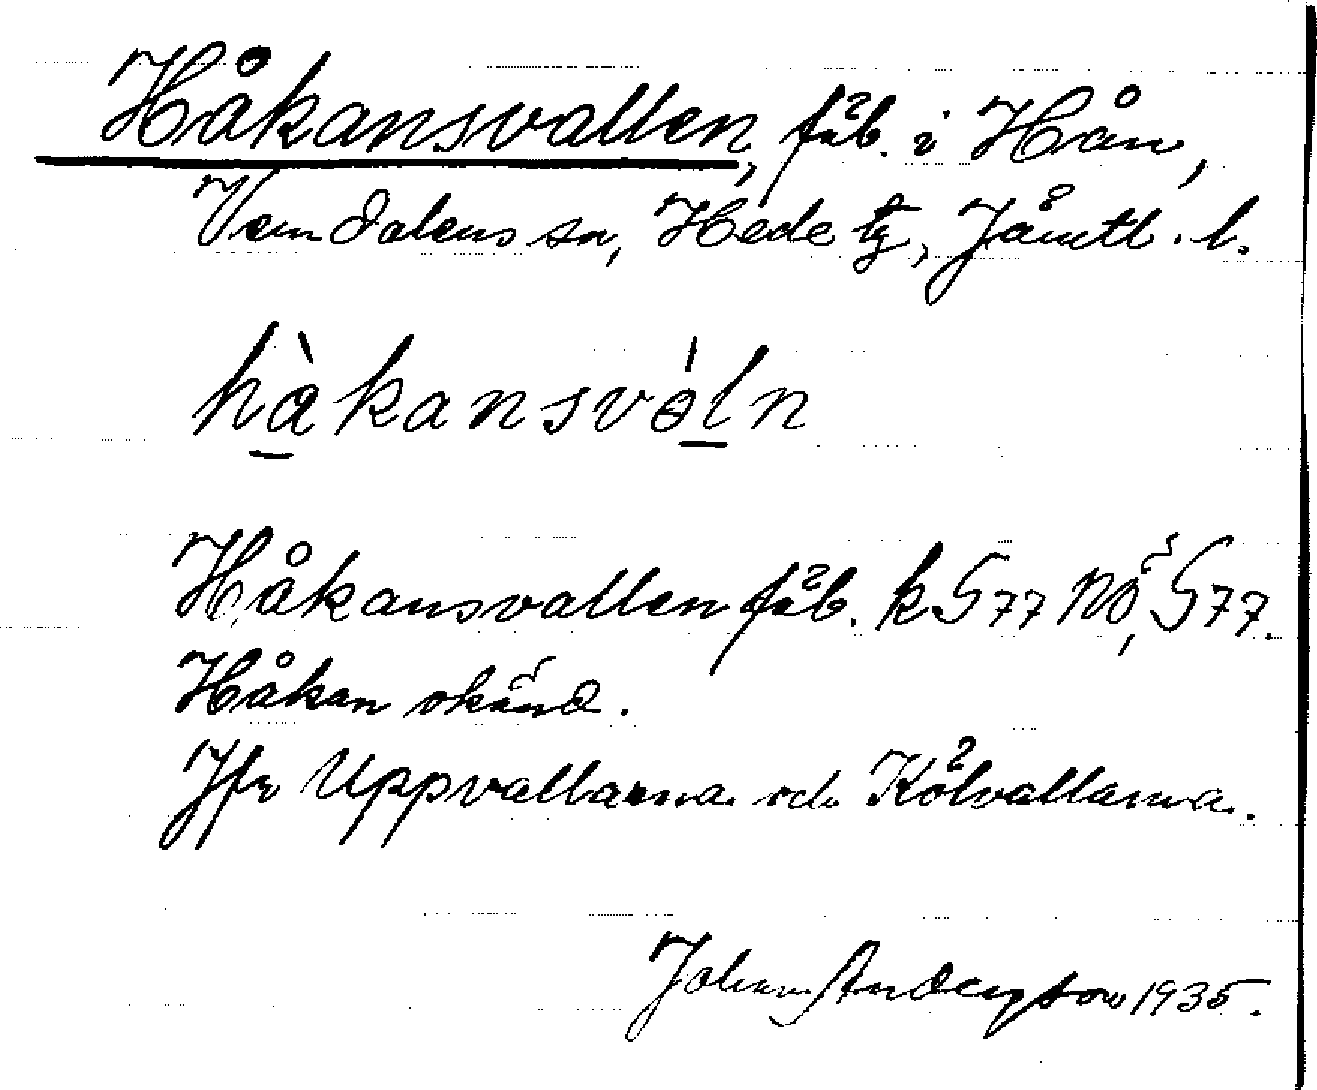 Håkansvallen, fäb. i Hån,
Vemdalens sn, Hede tg, Jämtl. l.
hàkansvòln
Håkansvallen fäb. k G77 NÖ, G77.
Håkan okänd.
Jfr Uppvallarna och Kölvallarna.
Johan Andersson 1935.